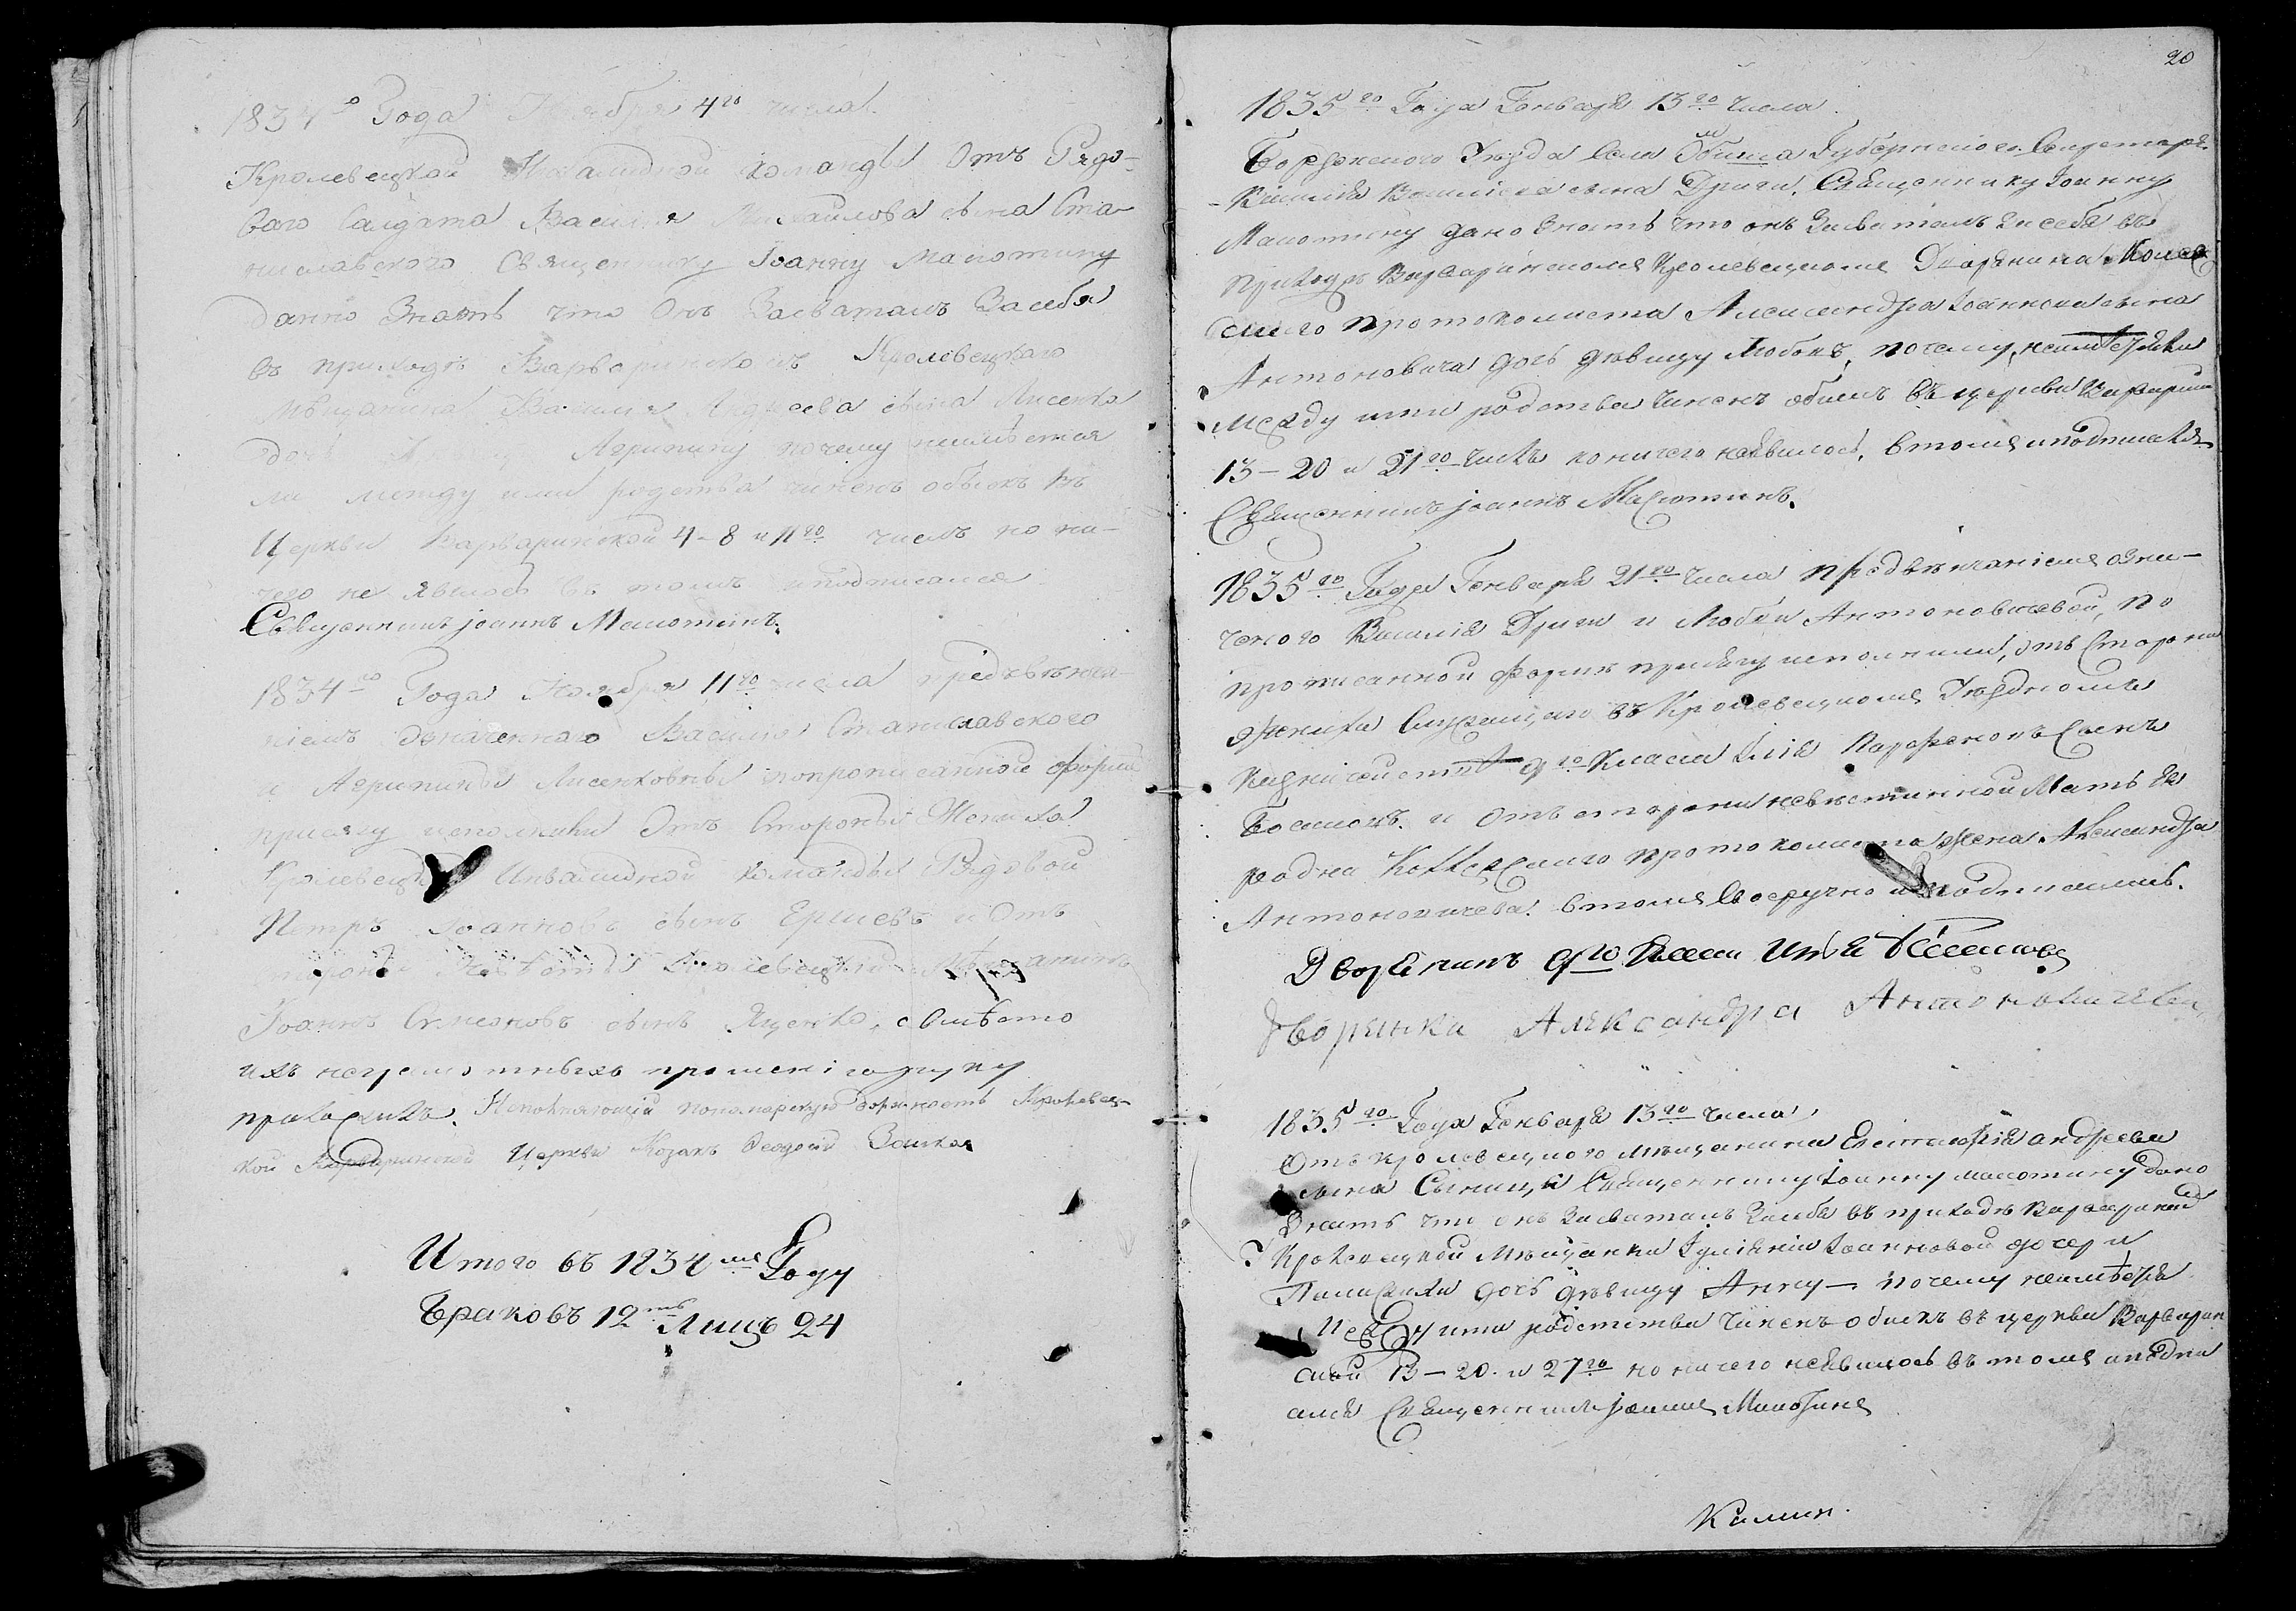 1834го Года Ноября 4го числа
Кролевецкой Инвалидной команды Отъ Рядо-
вого Салдата Василія Михайлова сына Ста-
ниславского Священнику Іоанну Малютину
данно знать что Онъ Засваталъ За себя
въ приходѣ Варваринскомъ Кролевецкаго
мѣщанина Василія Андреева сына Лисенка
дочь Агрипину почему неимѣется
ли между ими родства чиненъ обыскъ въ
Церкви Варваринской 4-8 и 11го числъ но ни-
чего не явилось въ томъ и подписался
Священникъ Іоаннъ Малютинъ.
1834го Года Ноября 11го числа предъвѣнча-
ніемъ означеннаго Василія Станиславского
и Агрипины Лисенковны попрописанной формѣ
присягу исполнили Отъ Стороны Жениха
Кролевецкой Инвалидной команды Рядовой
Петръ Іоанновъ сынъ Ершевъ и Отъ
стороны Невѣсты Кролевецкій Мѣщанинъ
Іоаннъ Семеоновъ сынъ Яценко, а вмѣсто
ихъ неграмотныхъ прошенію руку
приложилъ. Исполняющій пономарскую должность Кролевец-
кой Варваринской Церкви Козакъ Феодосій
Итого въ 1834мъ Году
Браковъ 12ть Лицъ 24
20
1835го Года Генваря 13го числа.
Борзенского Уѣзда Села Губернского Секретаря
Василія Василіева сына Дриги, Священнику Іоанну
Малютину дано знать что онъ Засваталъ за себя въ
приходѣ Варваринскомъ Кролевецкомъ Дворянина Колеж
ского протоколиста Александра Іоаннова сына
Антоновича дочь дѣвицу Любовь, почему неимѣетъли
между ими родства чиненъ обыскъ въ церкви Варварин
13-20 и 21го числъ но ничего неявилось, втомъ и подписался
Священникъ Іоаннъ Малютинъ.
1835го Года Генваря 21го числа предвѣнчаніемъ озна-
ченого Василія Дриги и Любви Антоновичевой, по
прописанной формѣ присягу исполнили, отъ Стороны
жениха Служащаго въ Кролевецкомъ Уѣздномъ
9го Класса Илія сынъ
и Отъ стороны невѣстиной Мать Ея
родна Колежского протоколиста жена Александра
Антоновичева. втомъ Своеручно и подписались.
Дворянинъ 9го Класса Илья
дворянка Александра Антоновичева
1835го Года Генваря 13го числа,
Отъ кролевецкого мѣщанина Евстафія андреева
сына Синицы Священнику Іоанну малютину дано
Знать что онъ Засваталъ Засебя въ приходѣ Варваринской
Кролевецкой Мѣщанки Іуліяніи Іоанновой дочери
дочь дѣвицу Анну — почему неимѣетъли
Между ими родства чиненъ обыскъ въ церкви Варварин
ской 13-20. и 27го но ничего неявилось въ томъ и подпи
ался Священникъ Іоаннъ Малютинъ